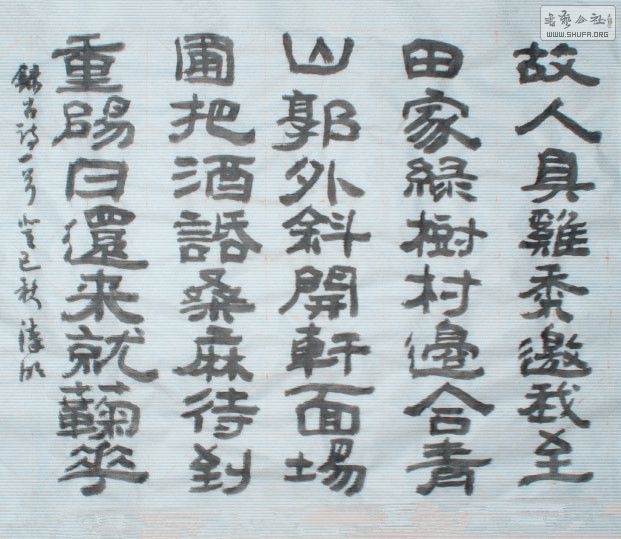 故人具雞黍邀我至
田家綠樹村邊合青
山郭外斜開軒面場
圃把酒話桑麻待到
重陽日還来就鞠華
錄古詩一首癸巳秋
书艺公社
WWW.SHUFA.ORG